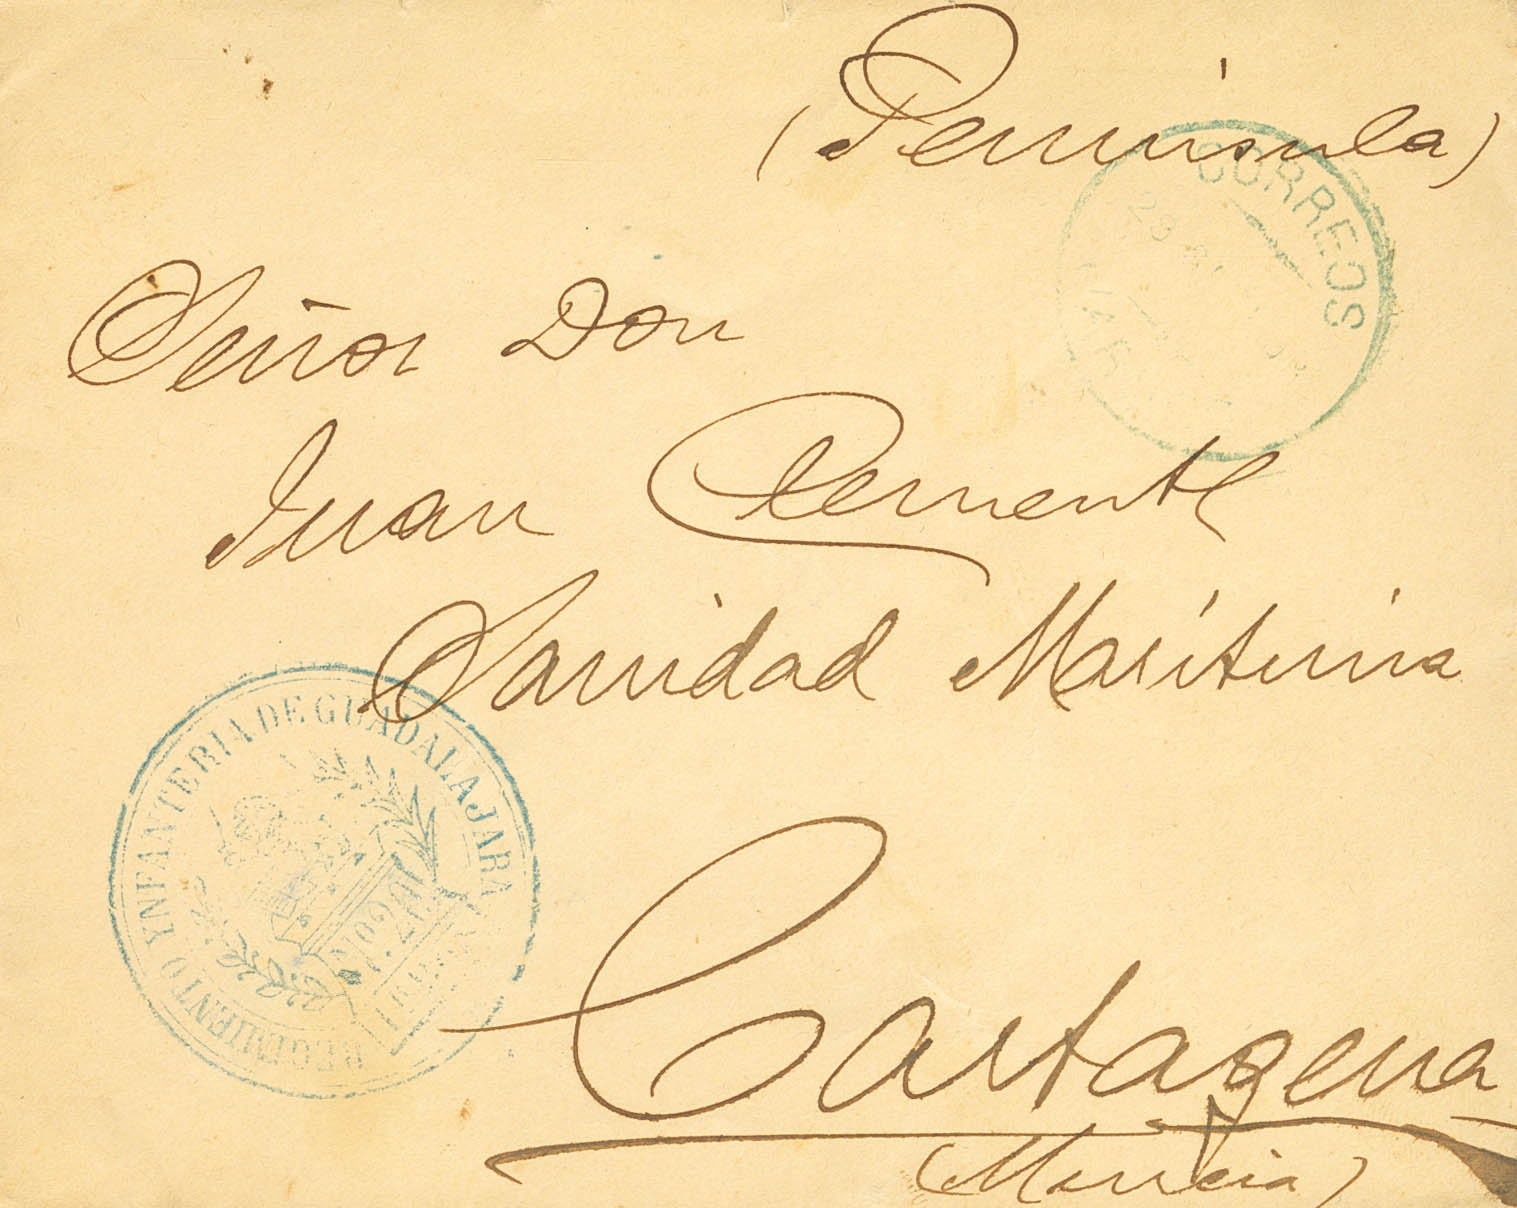 (Peninsula)
CORREOS
Señor Don
Juan Clemente
Sanidad Maritima
REGIMIENTO YNFANTERIA DE GUADALAJARA
Nº 20
Cartagena
(Murcia)